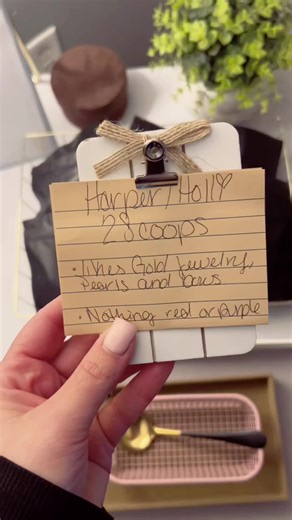 Harper/Holly
2 Scoops
• Likes Gold jewelry,
pearls and bows
• Nothing red or purple